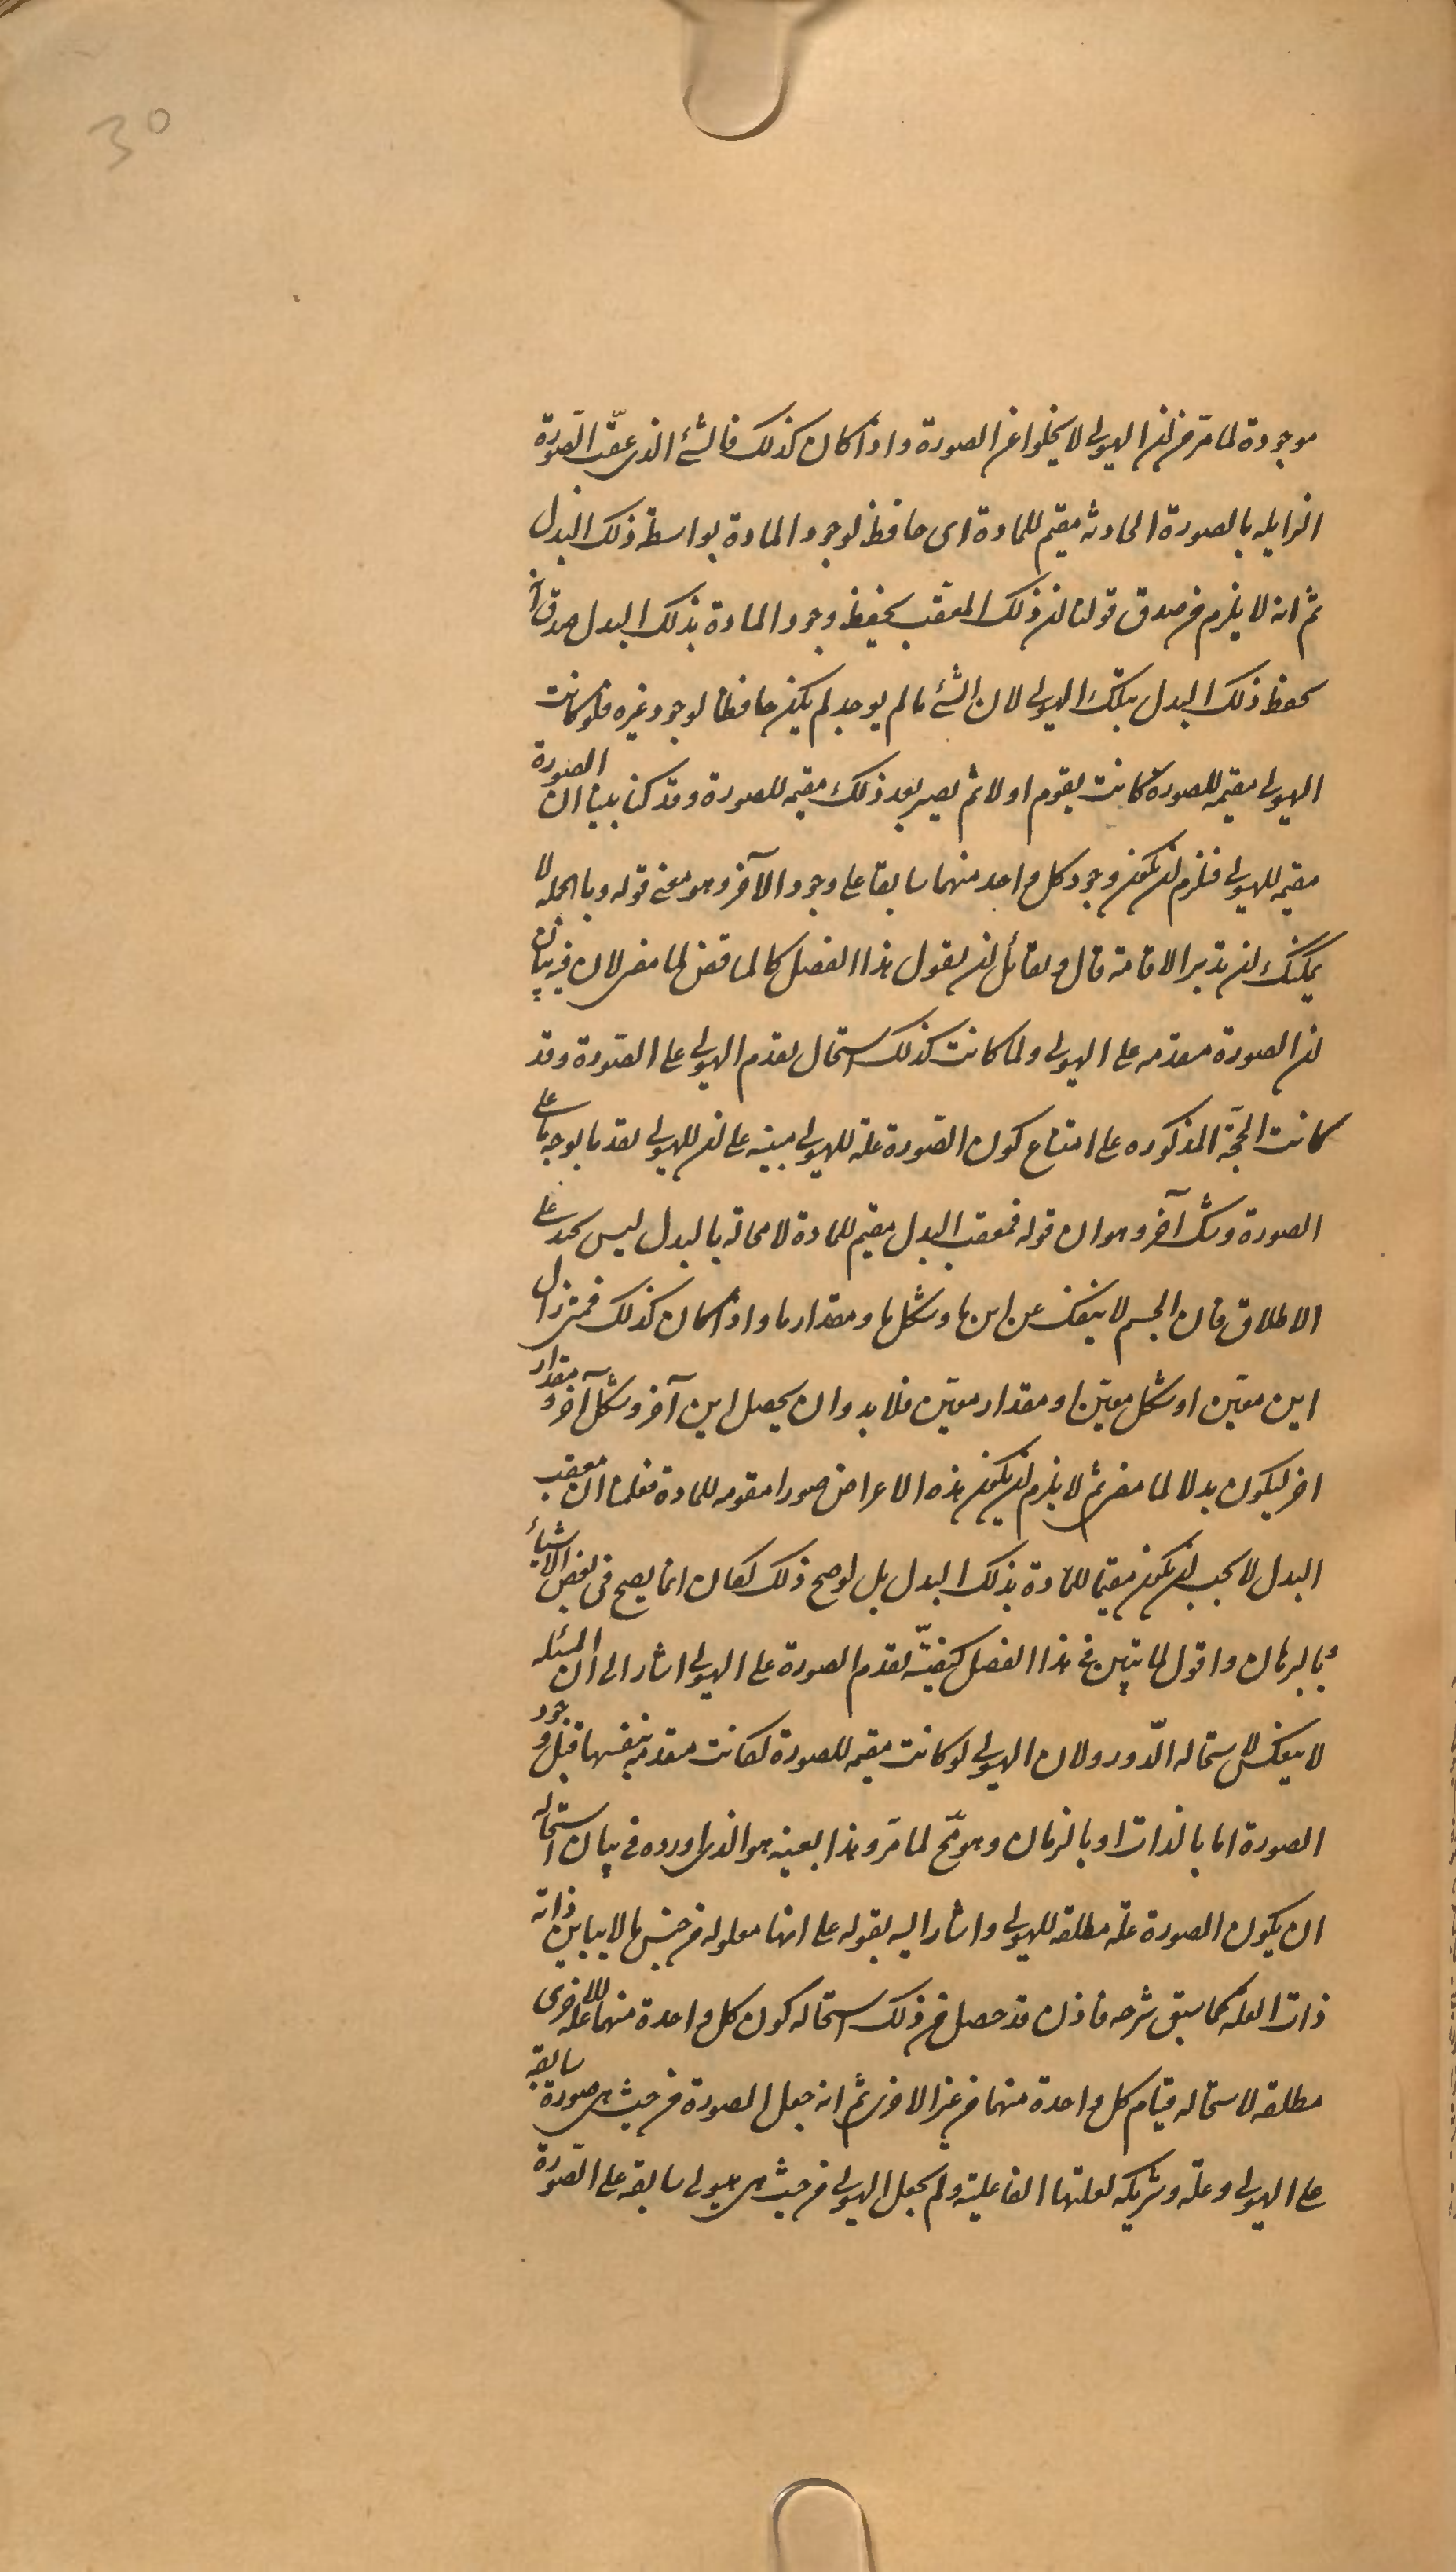 30
موجودة لما مر من ان الهيولى لا يخلوا عن الصورة واذا كان كذلك فالشئ الذى عقّب الصّورة
الزايله بالصورة الحادثه مقيم للمادة اى حافظ لوجود المادة بواسطة ذلك البدل
ثم انه لا يلزم من صدق قولنا ان ذلك المعقب يحفظ وجود المادة بذلك البدل صدق انه
يحفظ ذلك البدل بتلك الهيولى لان الشئ ما لم يوجد لم يكن حافظا لوجود غيره فلو كانت
الهيولى مقيمه للصورة كانت يقوم اولا ثم يصير بعد ذلك مقيمه للصورة وقد كنا بينا ان الصورة
مقيمه للهيولى فلزم ان يكون وجود كل واحد منهما سابقا على وجود الآخر وهو معنى قوله وبالجمله لا
يمكنك ان تدبر الاقامة قال ولقائل ان يقول هذا الفصل كالمناقض لما مضى لان فيه بيان
ان الصورة مقدمه على الهيولى ولما كانت كذلك استحال تقدم الهيولى على الصّورة وقد
كانت الحجّة المذكوره على امتناع كون الصّورة علة للهيولى مبينه على ان للهيولى تقدما بوجه ما على
الصورة وشك آخر وهو ان قوله فمعقب البدل مقيم للمادة لا محالة بالبدل ليس بحمد على
الاطلاق فان الجسم لا ينفك عن اين ما وشكل ما ومقدار ما واذا كان كذلك فمتى زال
اين معيّن او شكل معيّن او مقدار معيّن فلا بد وان يحصل اين آخر وشكل آخر ومقدار
اخر ليكون بدلا لما مضى ثم لا يلزم ان يكون هذه الاعراض صورا مقومه للمادة فعلمنا ان معقب
البدل لا يجب ان يكون مقيما للمادة بذلك البدل بل لو صح ذلك لكان انما يصح فى بعض الاشياء
وبالبرهان واقول لما بين فى هذا الفصل كيفيّة تقدم الصورة على الهيولى اشار الى ان المسئله
لا ينعكس لاستحاله الدّور ولان الهيولى لو كانت مقيمه للصورة لكانت مقدمه بنفسها قبل وجود
الصورة اما بالذات او بالزمان وهو مح لما مر وهذا بعينه هو الذى اورده فى بيان استحاله
ان يكون الصورة علّه مطلقه للهيولى واشار اليه بقوله على انها معلوله من جنس ما لا يباين ذاته
ذات العله كما سبق شرحه فاذن قد حصل من ذلك استحاله كون كل واحدة منهما علة للاخرى
مطلقه لاستحاله قيام كل واحدة منهما من غير الاخرى ثم انه جعل الصورة من حيث هى صورة سابقه
على الهيولى وعلّه وشريكه لعلتها الفاعلية ولم يجعل الهيولى من حيث هى هيولى سابقه على الصّورة